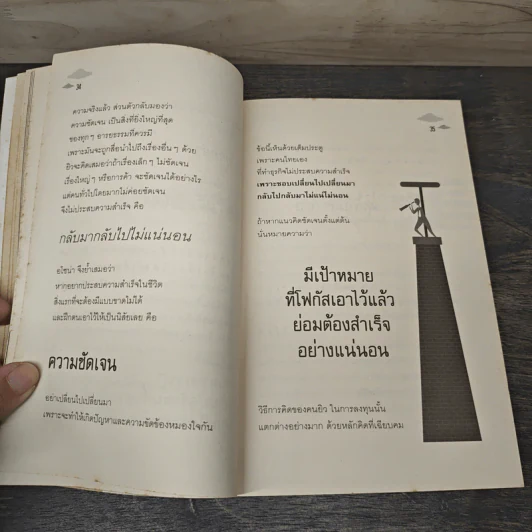 34
ความจริงแล้ว ส่วนตัวกลับมองว่า
ความชัดเจน เป็นสิ่งที่ยิ่งใหญ่ที่สุด
ของทุก ๆ อารยธรรมที่ควรมี
เพราะมันจะถูกสื่อนำไปถึงเรื่องอื่น ๆ ด้วย
ยิวจะคิดเสมอว่าถ้าเรื่องเล็ก ๆ ไม่ชัดเจน
เรื่องใหญ่ ๆ หรือการค้า จะชัดเจนได้อย่างไร
แต่คนทั่วไปโดยมากไม่ค่อยชัดเจน
จึงไม่ประสบความสำเร็จ คือ
กลับมากลับไปไม่แน่นอน
อไซน่า จึงย้ำเสมอว่า
หากอยากประสบความสำเร็จในชีวิต
สิ่งแรกที่จะต้องมีแบบขาดไม่ได้
และฝึกตนเอาไว้ให้เป็นนิสัยเลย คือ
ความชัดเจน
อย่าเปลี่ยนไปเปลี่ยนมา
เพราะจะทำให้เกิดปัญหาและความขัดข้องหมองใจกัน
35
ข้อนี้เห็นด้วยเต็มประตู
เพราะคนไทยเอง
ที่ทำธุรกิจไม่ประสบความสำเร็จ
เพราะชอบเปลี่ยนไปเปลี่ยนมา
กลับไปกลับมาไม่แน่ไม่นอน
ถ้าหากแนวคิดชัดเจนตั้งแต่ต้น
นั่นหมายความว่า
มีเป้าหมาย
ที่โฟกัสเอาไว้แล้ว
ย่อมต้องสำเร็จ
อย่างแน่นอน
วิธีการคิดของคนยิว ในการลงทุนนั้น
แตกต่างอย่างมาก ด้วยหลักคิดที่เฉียบคม